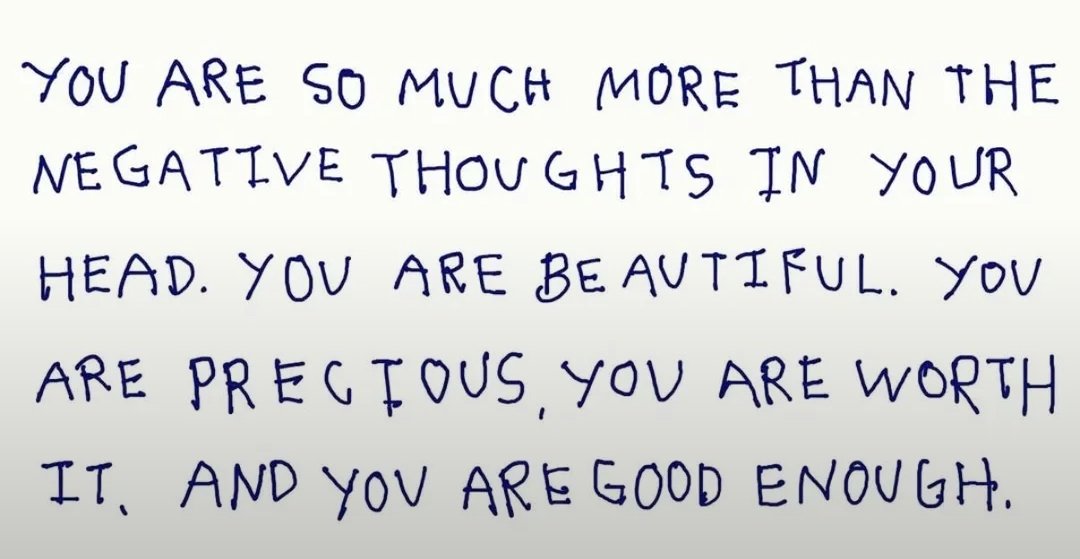 YOU ARE SO MUCH MORE THAN THE
NEGATIVE THOUGHTS IN YOUR
HEAD. YOU ARE BEAUTIFUL. YOU
ARE PRECIOUS, YOU ARE WORTH
IT. AND YOU ARE GOOD ENOUGH.